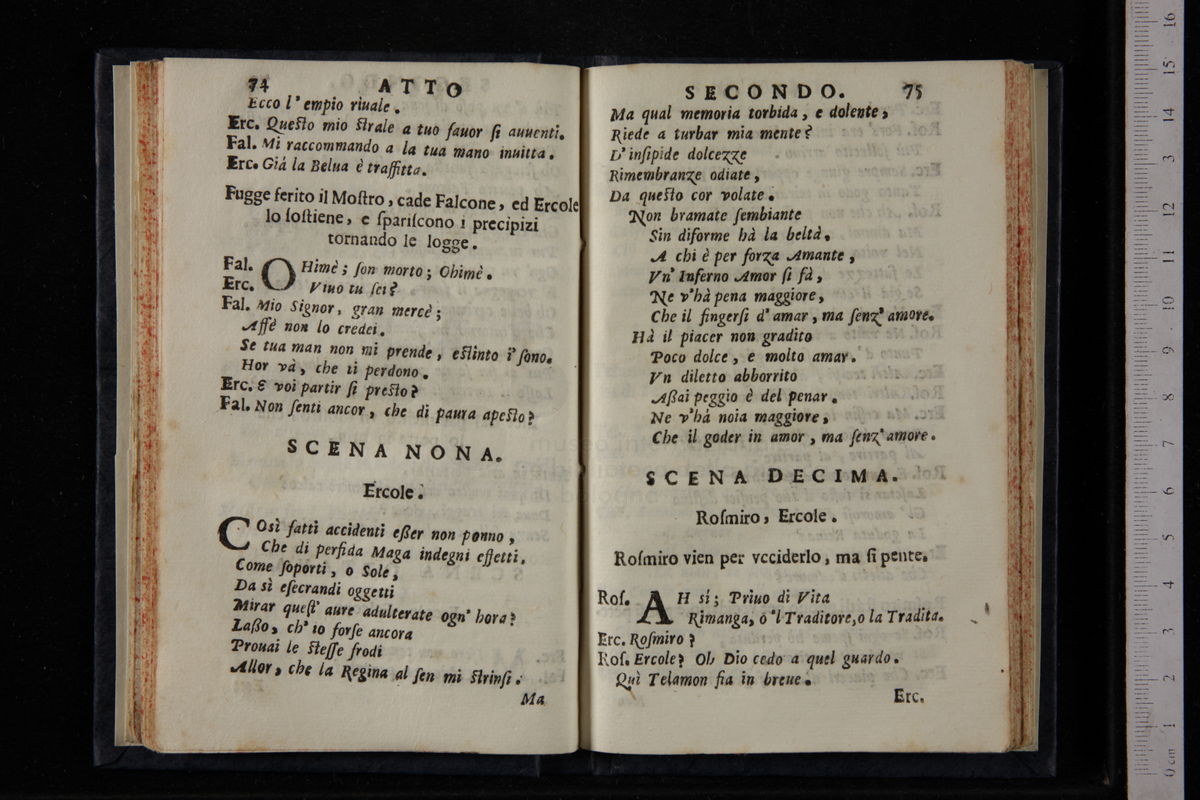 74 ATTO
Ecco l'empio riuale.
Erc. Questo mio strale a tuo fauor si auuenti.
Fal. Mi raccommando a la tua mano inuitta.
Erc. Giá la Belua è traffitta.
Fugge ferito il Mostro, cade Falcone, ed Ercole
lo sostiene, e spariscono i precipizi
tornando le logge.
Fal. OHimè; son morto; Ohimè.
Erc. Viuo tu sei?
Fal. Mio Signor, gran mercè;
Affè non lo credei.
Se tua man non mi prende, estinto i' sono.
Hor và, che ti perdono.
Erc. E voi partir si presto?
Fal. Non senti ancor, che di paura apesto?
SCENA NONA.
Ercole.
COsì fatti accidenti esser non ponno,
Che di perfida Maga indegni effetti.
Come soporti, o Sole,
Da sì esecrandi oggetti
Mirar quest' aure adulterate ogn' hora?
Lasso, ch' io forse ancora
Prouai le stesse frodi
Allor, che la Regina al sen mi strinsi.
Ma
SECONDO. 75
Ma qual memoria torbida, e dolente,
Riede a turbar mia mente?
D' insipide dolcezze
Rimembranze odiate,
Da questo cor volate.
Non bramate sembiante
Sin diforme hà la beltà.
A chi è per forza Amante,
Vn' Inferno Amor si fà,
Ne v'hà pena maggiore,
Che il fingersi d' amar, ma senz' amore.
Hà il piacer non gradito
Poco dolce, e molto amar.
Vn diletto abborrito
Assai peggio è del penar.
Ne v'hà noia maggiore,
Che il goder in amor, ma senz' amore.
SCENA DECIMA.
Rosmiro, Ercole.
Rosmiro vien per vcciderlo, ma si pente.
Ros. AH sí; Priuo di Vita
Rimanga, ò 'l Traditore, o la Tradita.
Erc. Rosmiro?
Ros. Ercole? Oh Dio cedo a quel guardo.
Quì Telamon fia in breue.
Erc.
0 cm 1 2 3 4 5 6 7 8 9 10 11 12 13 14 15 16